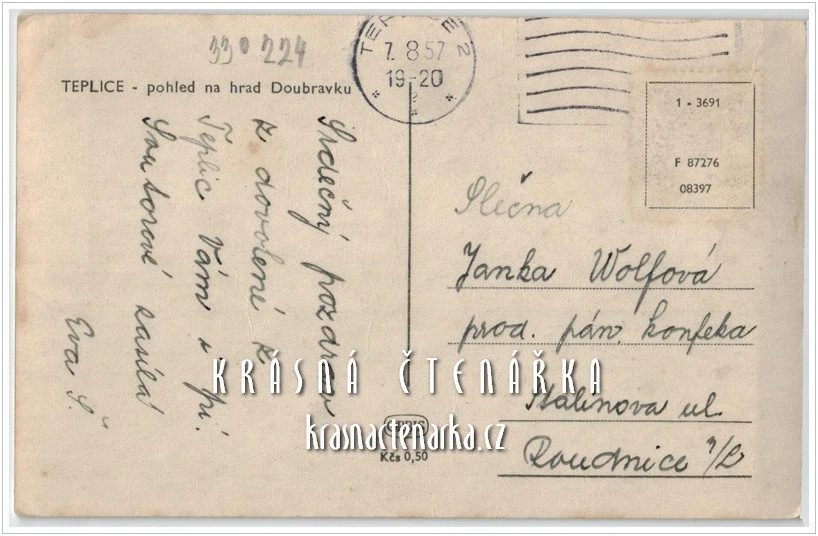 330224
TEPLICE - pohled na hrad Doubravku
7. 8 57
19-20
2
1 - 3691
F 87276
08397
Srdečný pozdrav
z dovolené z
Teplic Vám i pí.
Souborové zasílá
Eva Š.
Slečna
Janka Wolfová
prod. pán. konfekce
Stalinova ul.
Roudnice n/L
KRÁSNÁ ČTENÁŘKA
krasnactenarka.cz
ORBIS
Kčs 0,50